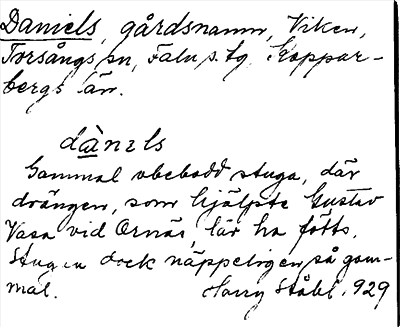 Daniels, gårdsnamn, Viken,
Torsångs sn, Falu s. tg. Koppar-
bergs län.
dànɛls
Gammal obebodd stuga, där
drängen, som hjälpte Gustav
Vasa vid Ornäs, lär ha fötts.
Stugan dock näppeligen så gam-
mal. Harry Ståhl. 1929